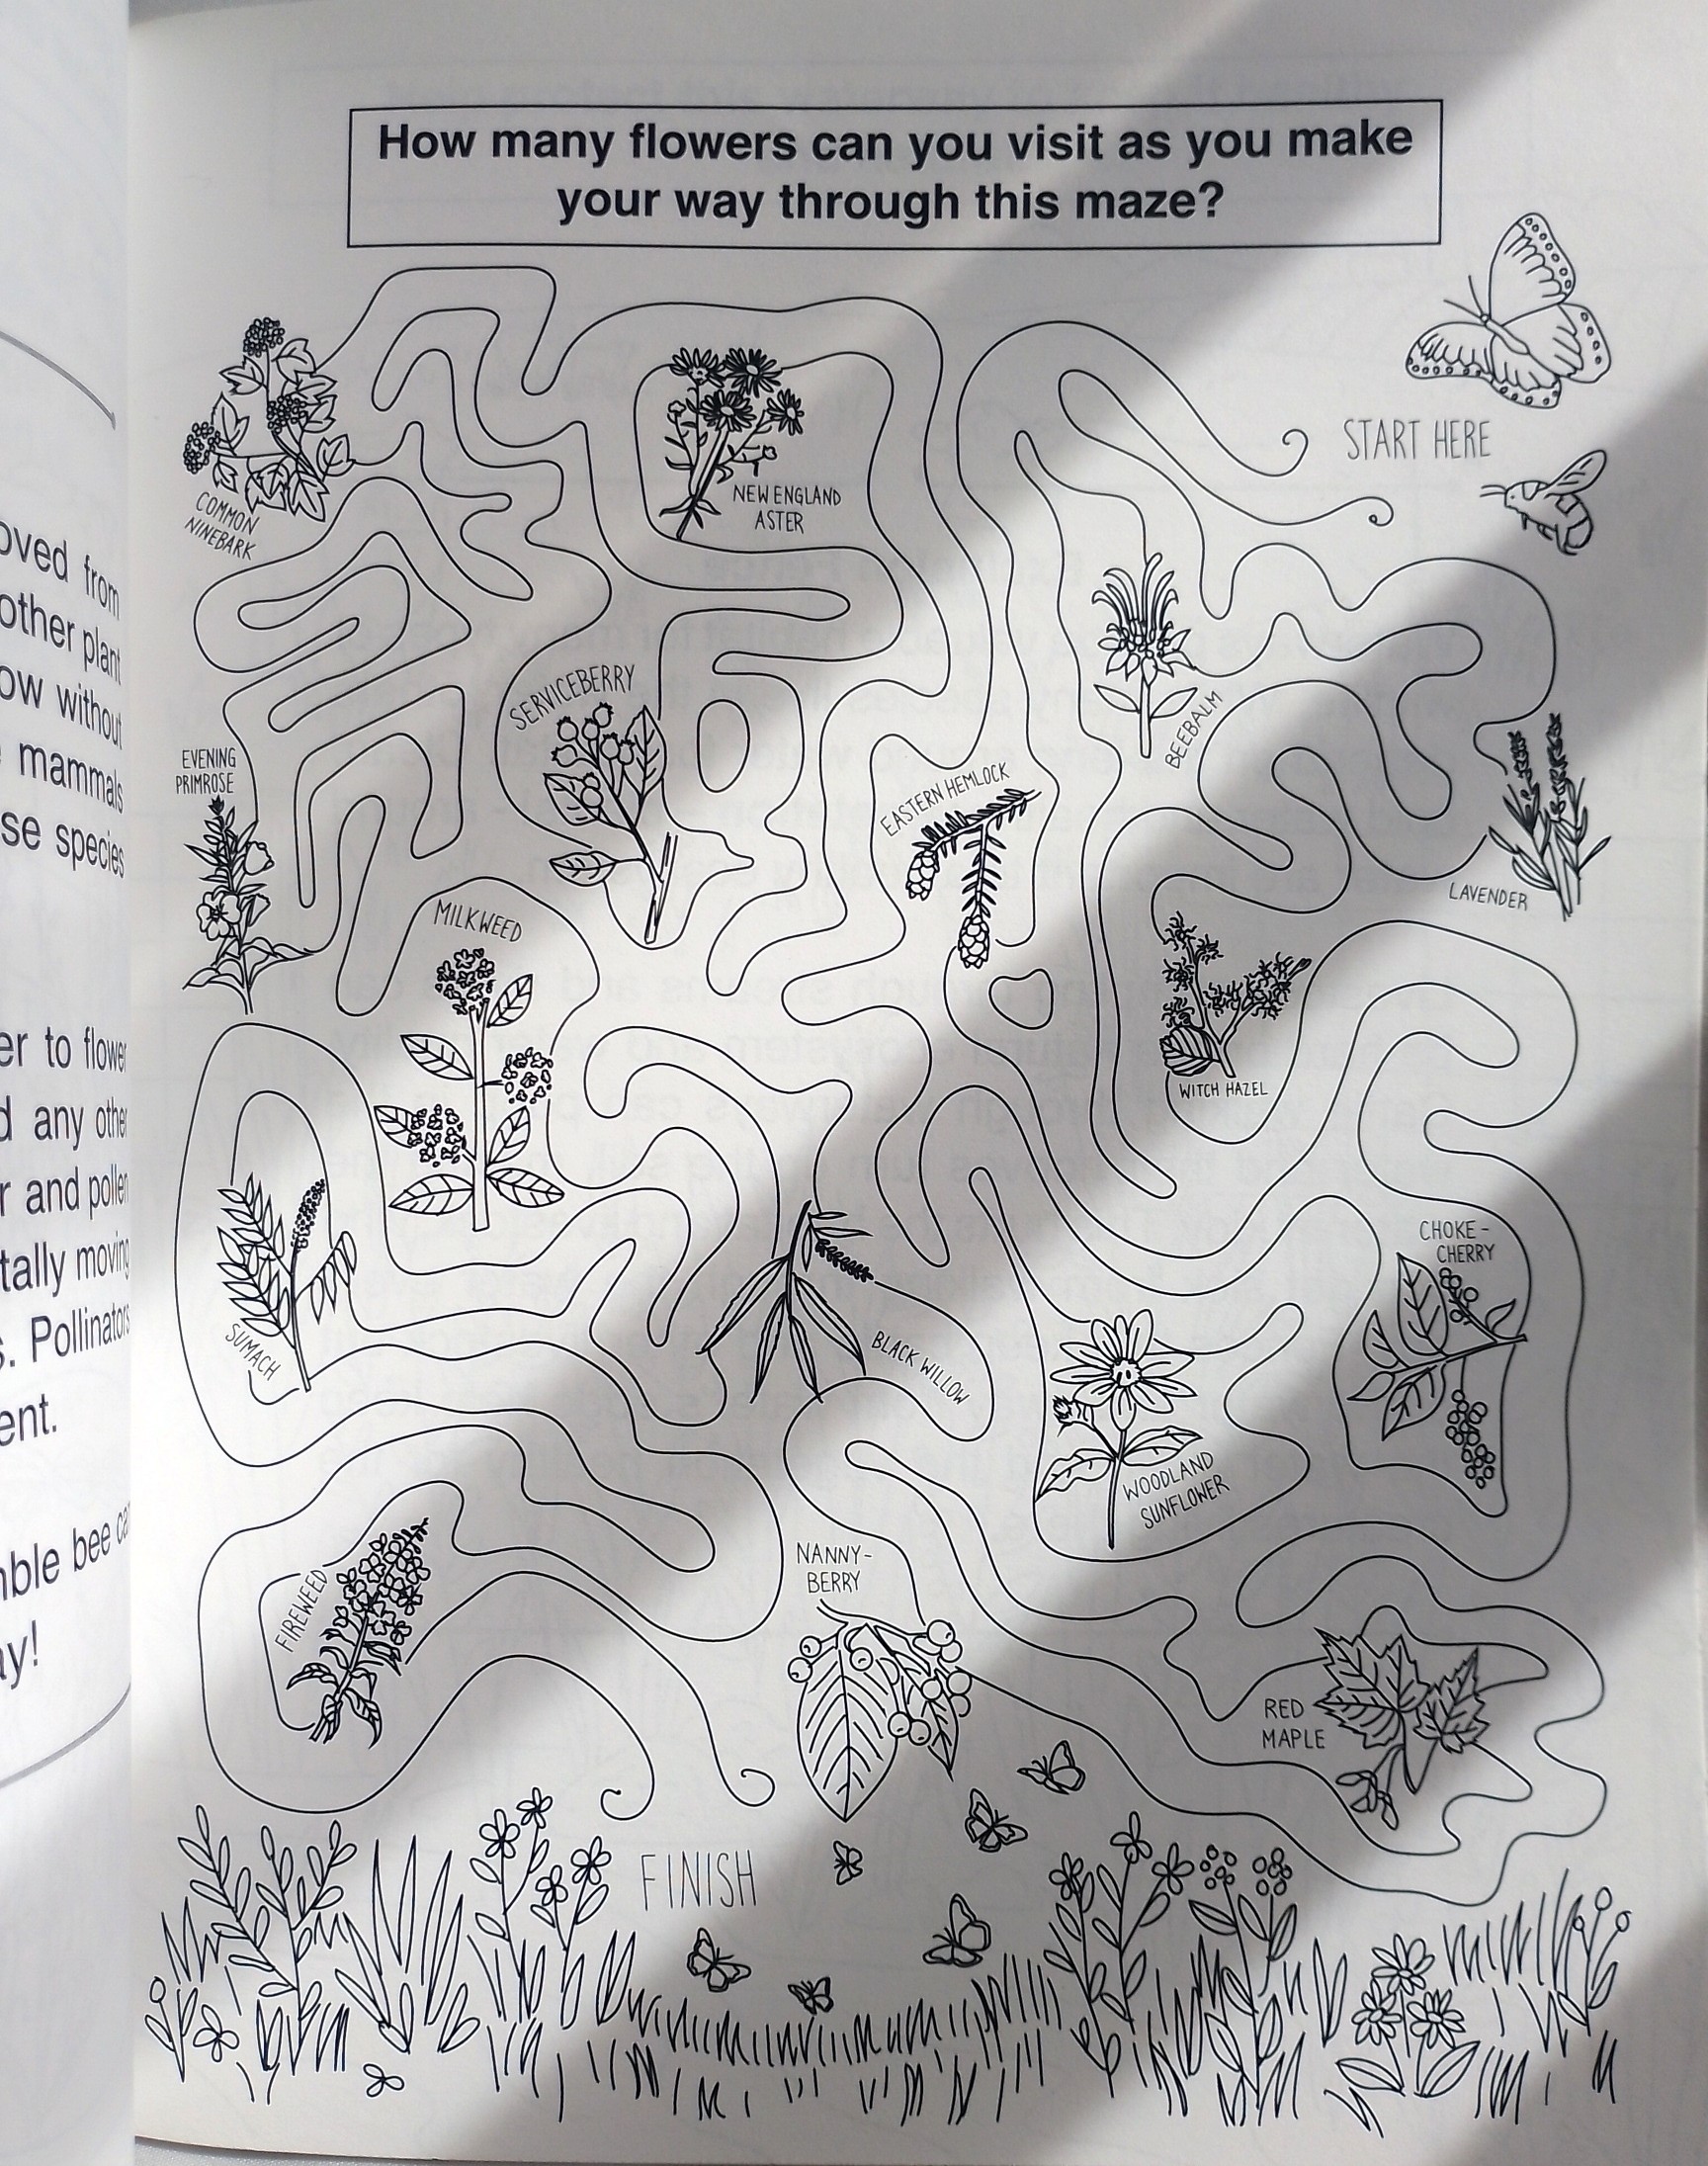 How many flowers can you visit as you make
your way through this maze?
START HERE
NEW ENGLAND
ASTER
COMMON
NINEBARK
SERVICEBERRY
BEEBALM
EVENING
PRIMROSE
EASTERN HEMLOCK
LAVENDER
MILKWEED
WITCH HAZEL
CHOKE-
CHERRY
SUMACH
BLACK WILLOW
WOODLAND
SUNFLOWER
NANNY-
BERRY
FIREWEED
RED
MAPLE
FINISH
oved from
other plant
ow without
mammals
se species
er to flower
d any other
r and pollen
tally moving
s. Pollinators
ent.
mble bee ca
ay!